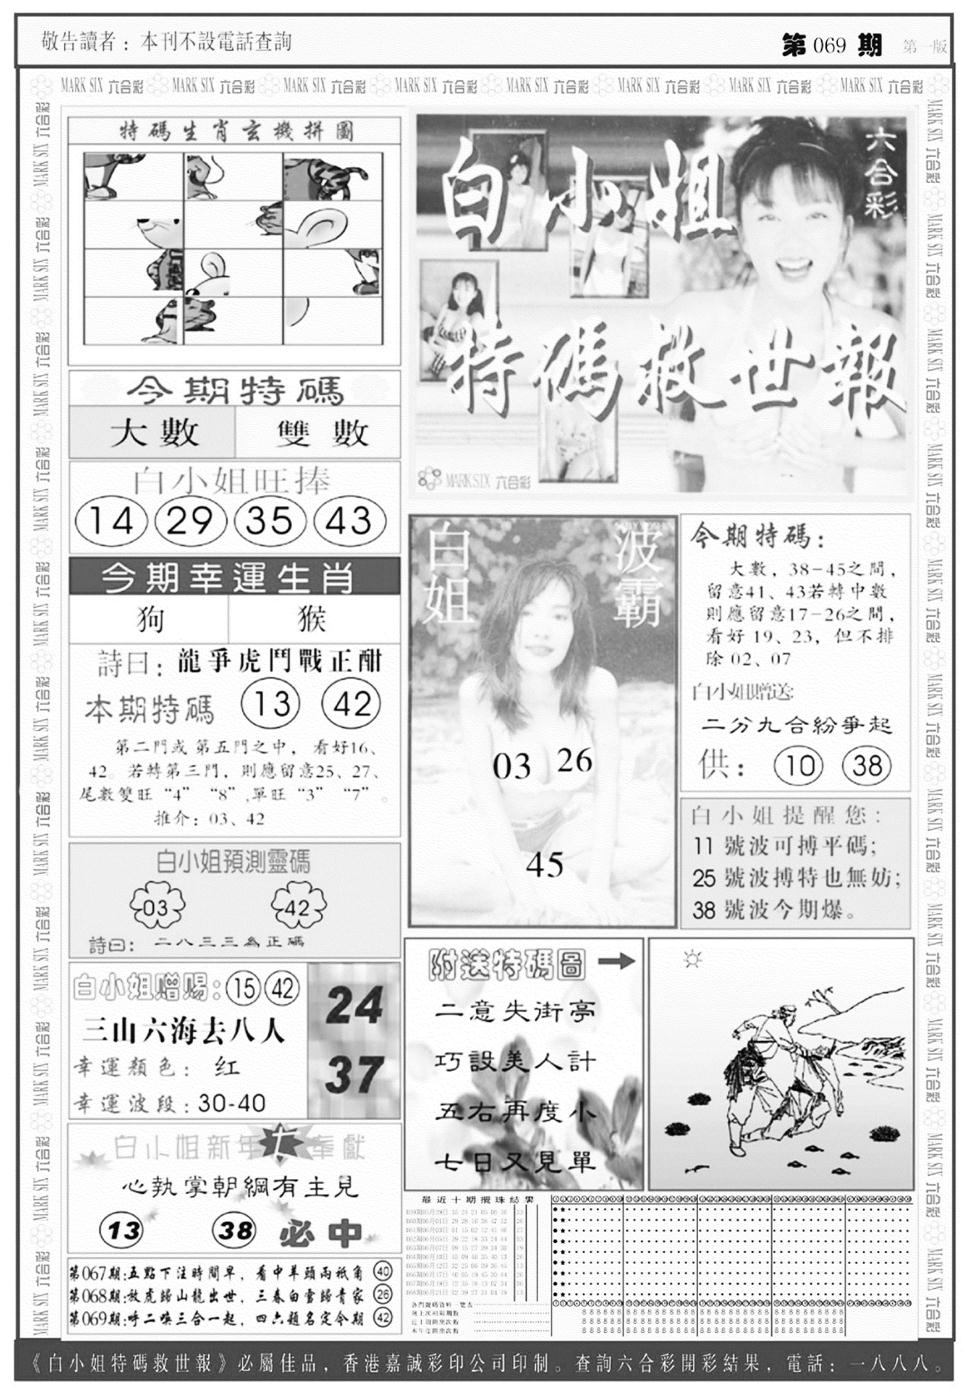 敬告讀者：本刊不設電話查詢
第069期 第一版
MARK SIX 六合彩 MARK SIX 六合彩 MARK SIX 六合彩 MARK SIX 六合彩 MARK SIX 六合彩 MARK SIX 六合彩 MARK SIX 六合彩 MARK SIX 六合彩
特碼生肖玄機拼圖
今期特碼
大數 雙數
白小姐旺捧
14 29 35 43
今期幸運生肖
狗 猴
詩曰：龍爭虎鬥戰正酣
本期特碼 13 42
第二門或第五門之中，看好16、
42。若轉第三門，則應留意25、27、
尾數雙旺“4” “8”,單旺“3” “7”。
推介：03、42
白小姐預測靈碼
03 42
詩曰：二八三三為正碼
白小姐赠赐：15 42
三山六海去八人
幸運顏色：红
幸運波段：30-40
24
37
白小姐新年 奉獻
心執掌朝綱有主見
13 38 必中
第067期:五點下注時間早，看中羊頭兩衹角 40
第068期:放虎歸山龍出世，三春白當歸青家 26
第069期:呼二喚三合一起，四六題名定今期 42
六合彩
白小姐
特碼救世報
MARK SIX 六合彩
白姐
波霸
03 26
45
今期特碼：
大數，38-45之間，
留意41、43若轉中數
則應留意17-26之間，
看好19、23，但不排
除02、07
白小姐贈送:
二分九合紛爭起
供：10 38
白小姐提醒您：
11 號波可搏平碼;
25 號波搏特也無妨;
38 號波今期爆。
附送特碼圖
二意失街亭
巧設美人計
五右再度小
七日又見單
最近十期攪珠結果
《白小姐特碼救世報》必屬佳品，香港嘉誠彩印公司印制。查詢六合彩開彩結果，電話：一八八八。